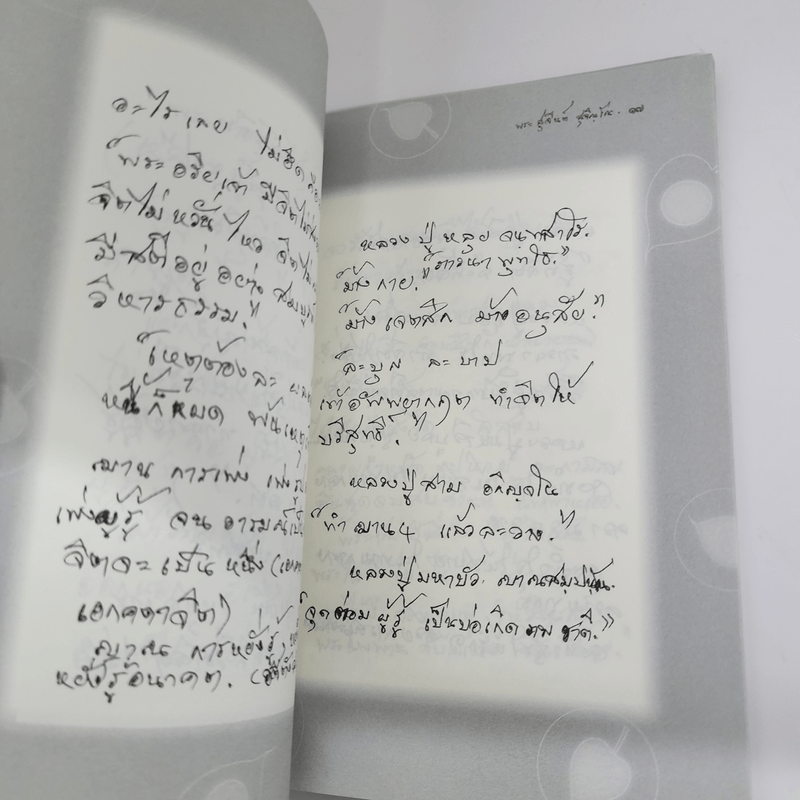 อะไรเลย ไม่ยึด
"พระอริยเจ้า มีจิตไม่
จิตไม่หวั่นไหว จิตไม่
มีสติอยู่อย่าง สมบูรณ์
วิหารธรรม."
"เหตุต้องละ
หนี้ก็หมด พ้นเหตุ
ฌาน การเพ่ง เพ่งรูป
เพ่งผู้รู้ จนอารมณ์เป็น
จิตจะเป็นหนึ่ง
เอกคตาจิต)
ญาณ การหยั่งรู้
หยั่งรู้อนาคต.
๑๗
หลวงปู่หลุย จนฺทสาโร.
ม้างกาย. "ภาวนา พุทโธ."
"ม้างเจตสิก ม้างอนุสัย."
"ละบุญ ละบาป
เข้าอัพพยากตา ทำจิตให้
บริสุทธิ์."
หลวงปู่สาม อกิญฺจโน
"ทำฌาน4 แล้วละวาง."
หลวงปู่มหาบัว. ญาณสมฺปนฺโน.
"จุดต่อม ผู้รู้ เป็นบ่อเกิด ภพ ชาติ."